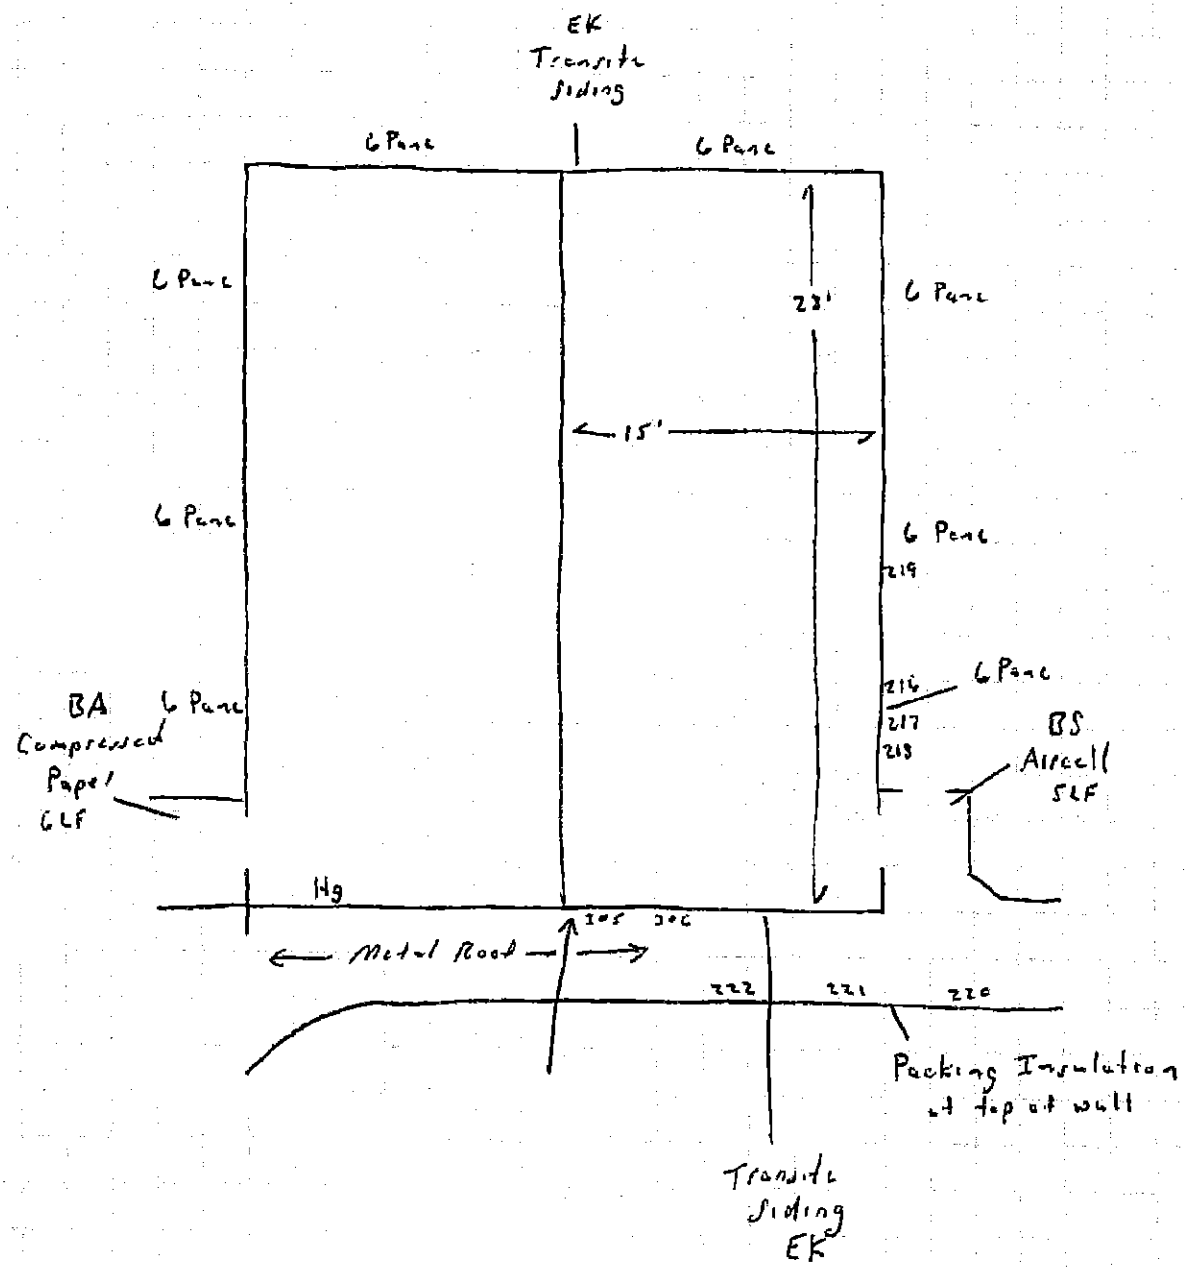 EK
Transite
Siding
6 Pane
6 Pane
6 Pane
23'
6 Pane
15'
6 Pane
6 Pane
219
BA
6 Pane
216
6 Pane
Compressed
217
BS
Paper
218
Aircell
6LF
5LF
Hg
205 206
Metal Roof
222 221 220
Packing Insulation
at top of wall
Transite
Siding
EK